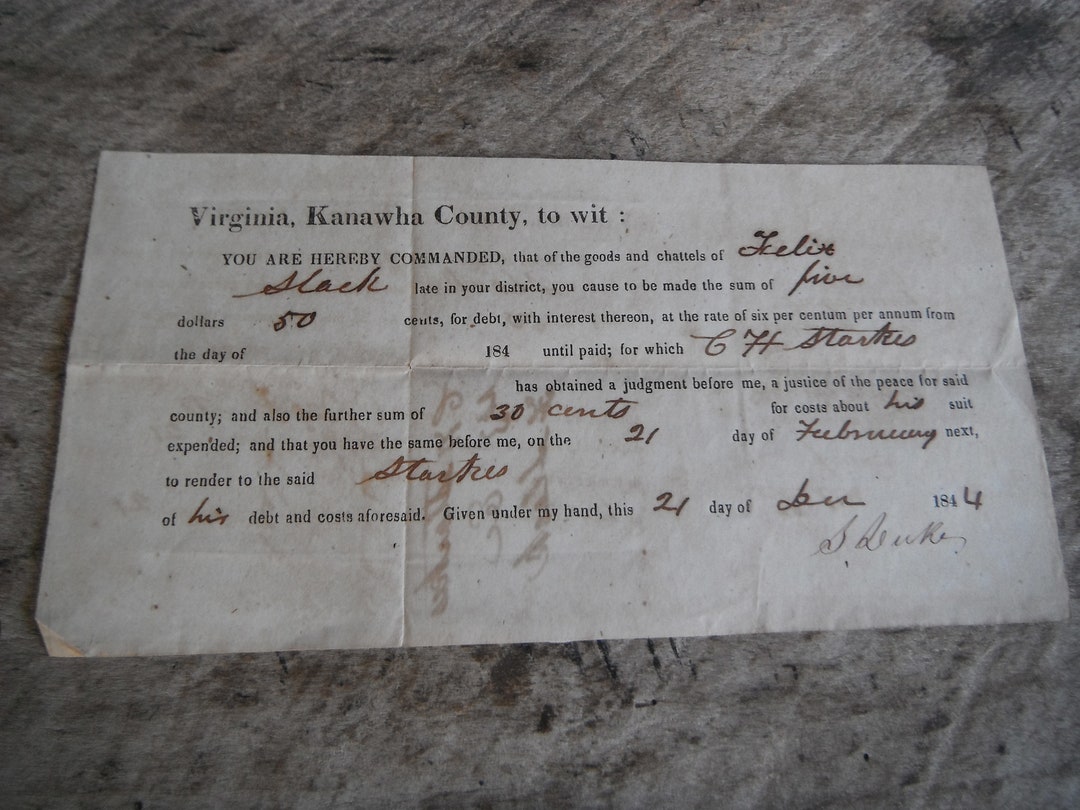 Virginia, Kanawha County, to wit :
YOU ARE HEREBY COMMANDED, that of the goods and chattels of Felix
Slack late in your district, you cause to be made the sum of five
dollars 50 cents, for debt, with interest thereon, at the rate of six per centum per annum from
the day of 184 until paid; for which C H Starkes
has obtained a judgment before me, a justice of the peace for said
county; and also the further sum of 30 cents for costs about his suit
expended; and that you have the same before me, on the 21 day of February next,
to render to the said Starkes
of his debt and costs aforesaid. Given under my hand, this 21 day of Der 1844